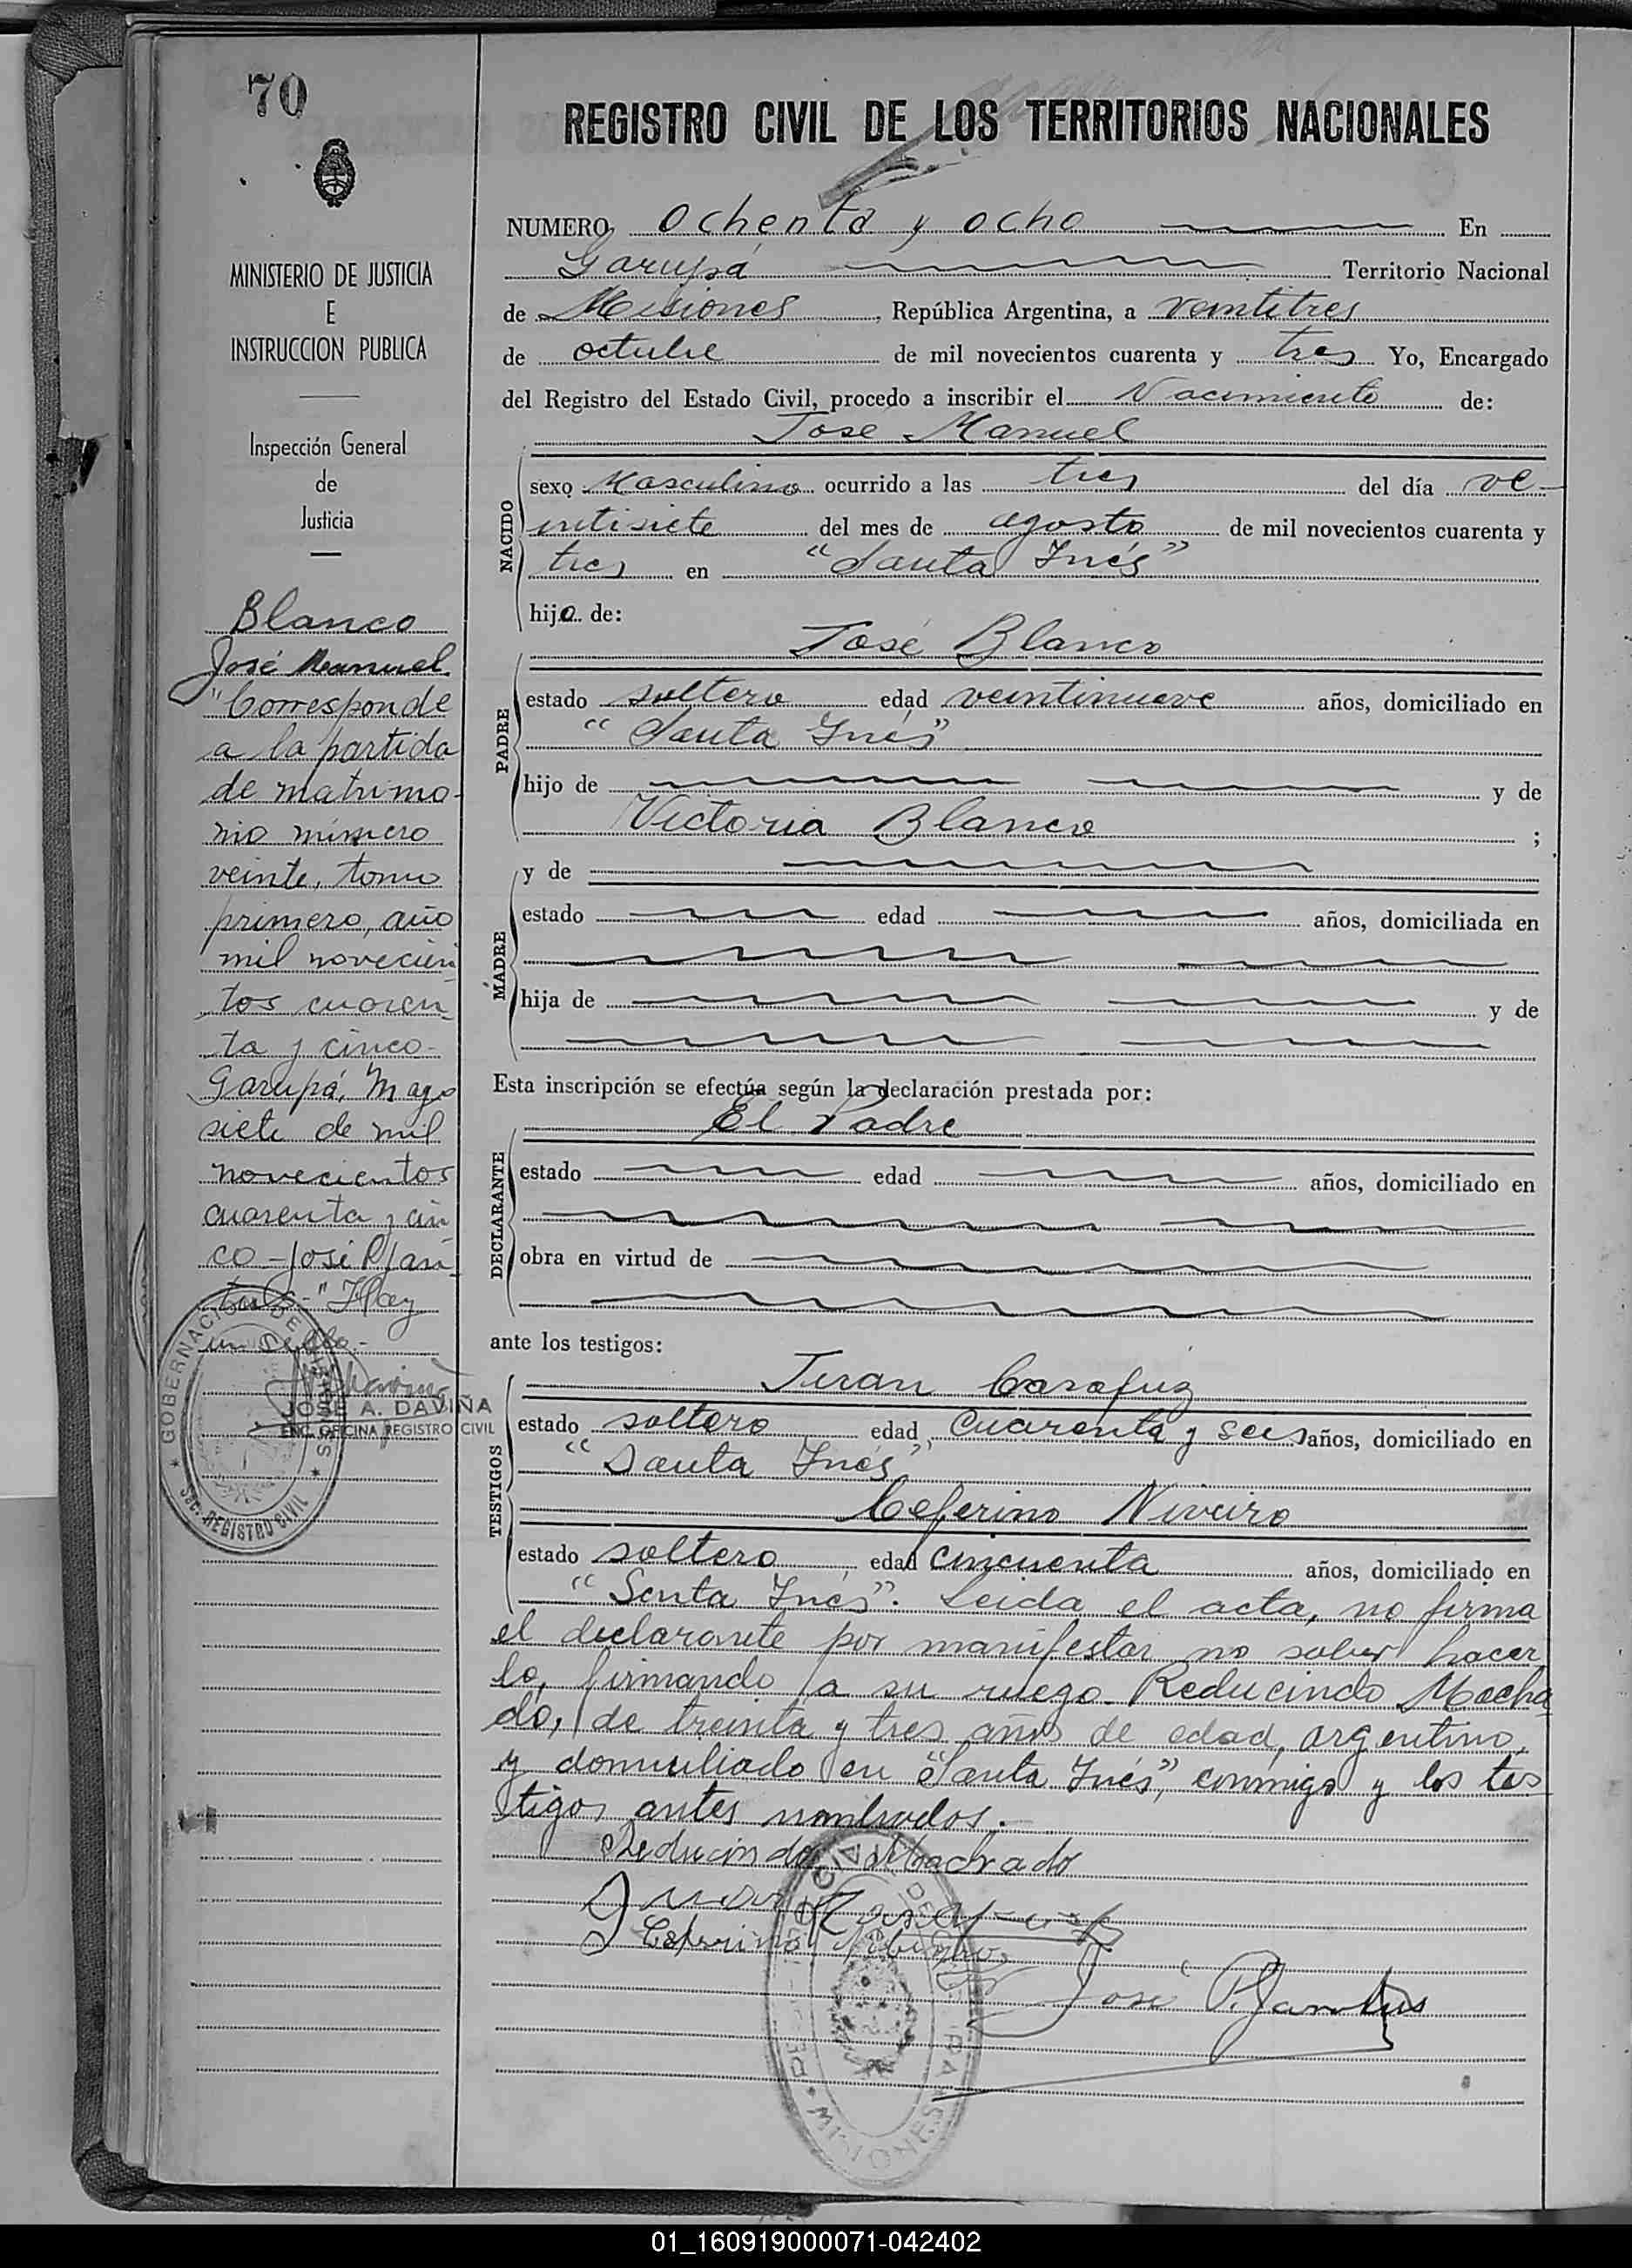 70
REGISTRO CIVIL DE LOS TERRITORIOS NACIONALES
MINISTERIO DE JUSTICIA
E
INSTRUCCION PUBLICA
Inspección General
de
Justicia
Blanco
José Manuel
"Corresponde
a la partida
de matrimo-
nio número
veinte, tomo
primero, año
mil novecien
tos cuaren-
ta y cinco-
Garupá, Mayo
siete de mil
novecientos
cuarenta y cin
co - José P. San
tus -" Hay
un Sello.-
JOSE A. DAVIÑA
ENC. OFICINA REGISTRO CIVIL
GOBERNACION DE MISIONES
SEC. REGISTRO CIVIL
NUMERO ochenta y ocho En
Garupá Territorio Nacional
de Misiones, República Argentina, a veintitres
de octubre de mil novecientos cuarenta y tres Yo, Encargado
del Registro del Estado Civil, procedo a inscribir el Nacimiento de:
José Manuel
NACIDO
sexo Masculino ocurrido a las tres del día ve-
intisiete del mes de agosto de mil novecientos cuarenta y
tres en "Santa Inés"
hijo de:
José Blanco
PADRE
estado soltero edad veintinueve años, domiciliado en
"Santa Inés"
hijo de y de
Victoria Blanco ;
MADRE
y de
estado edad años, domiciliada en
hija de y de
Esta inscripción se efectúa según la declaración prestada por:
El Padre
DECLARANTE
estado edad años, domiciliado en
obra en virtud de
ante los testigos:
TESTIGOS
Juan Carafuz
estado soltero edad cuarenta y seis años, domiciliado en
"Santa Inés"
Ceferino Niveiro
estado soltero, edad cincuenta años, domiciliado en
"Santa Inés". Leida el acta, no firma
el declarante por manifestar no saber hacer
lo, firmando a su ruego Reducindo Macha
do, de treinta y tres años de edad, argentino,
y domiciliado en "Santa Inés", conmigo y los tes
tigos antes nombrados.-
Reducindo Machado
Juan Carafuz
Ceferino
José P. Santus
MISIONES
01_160919000071-042402